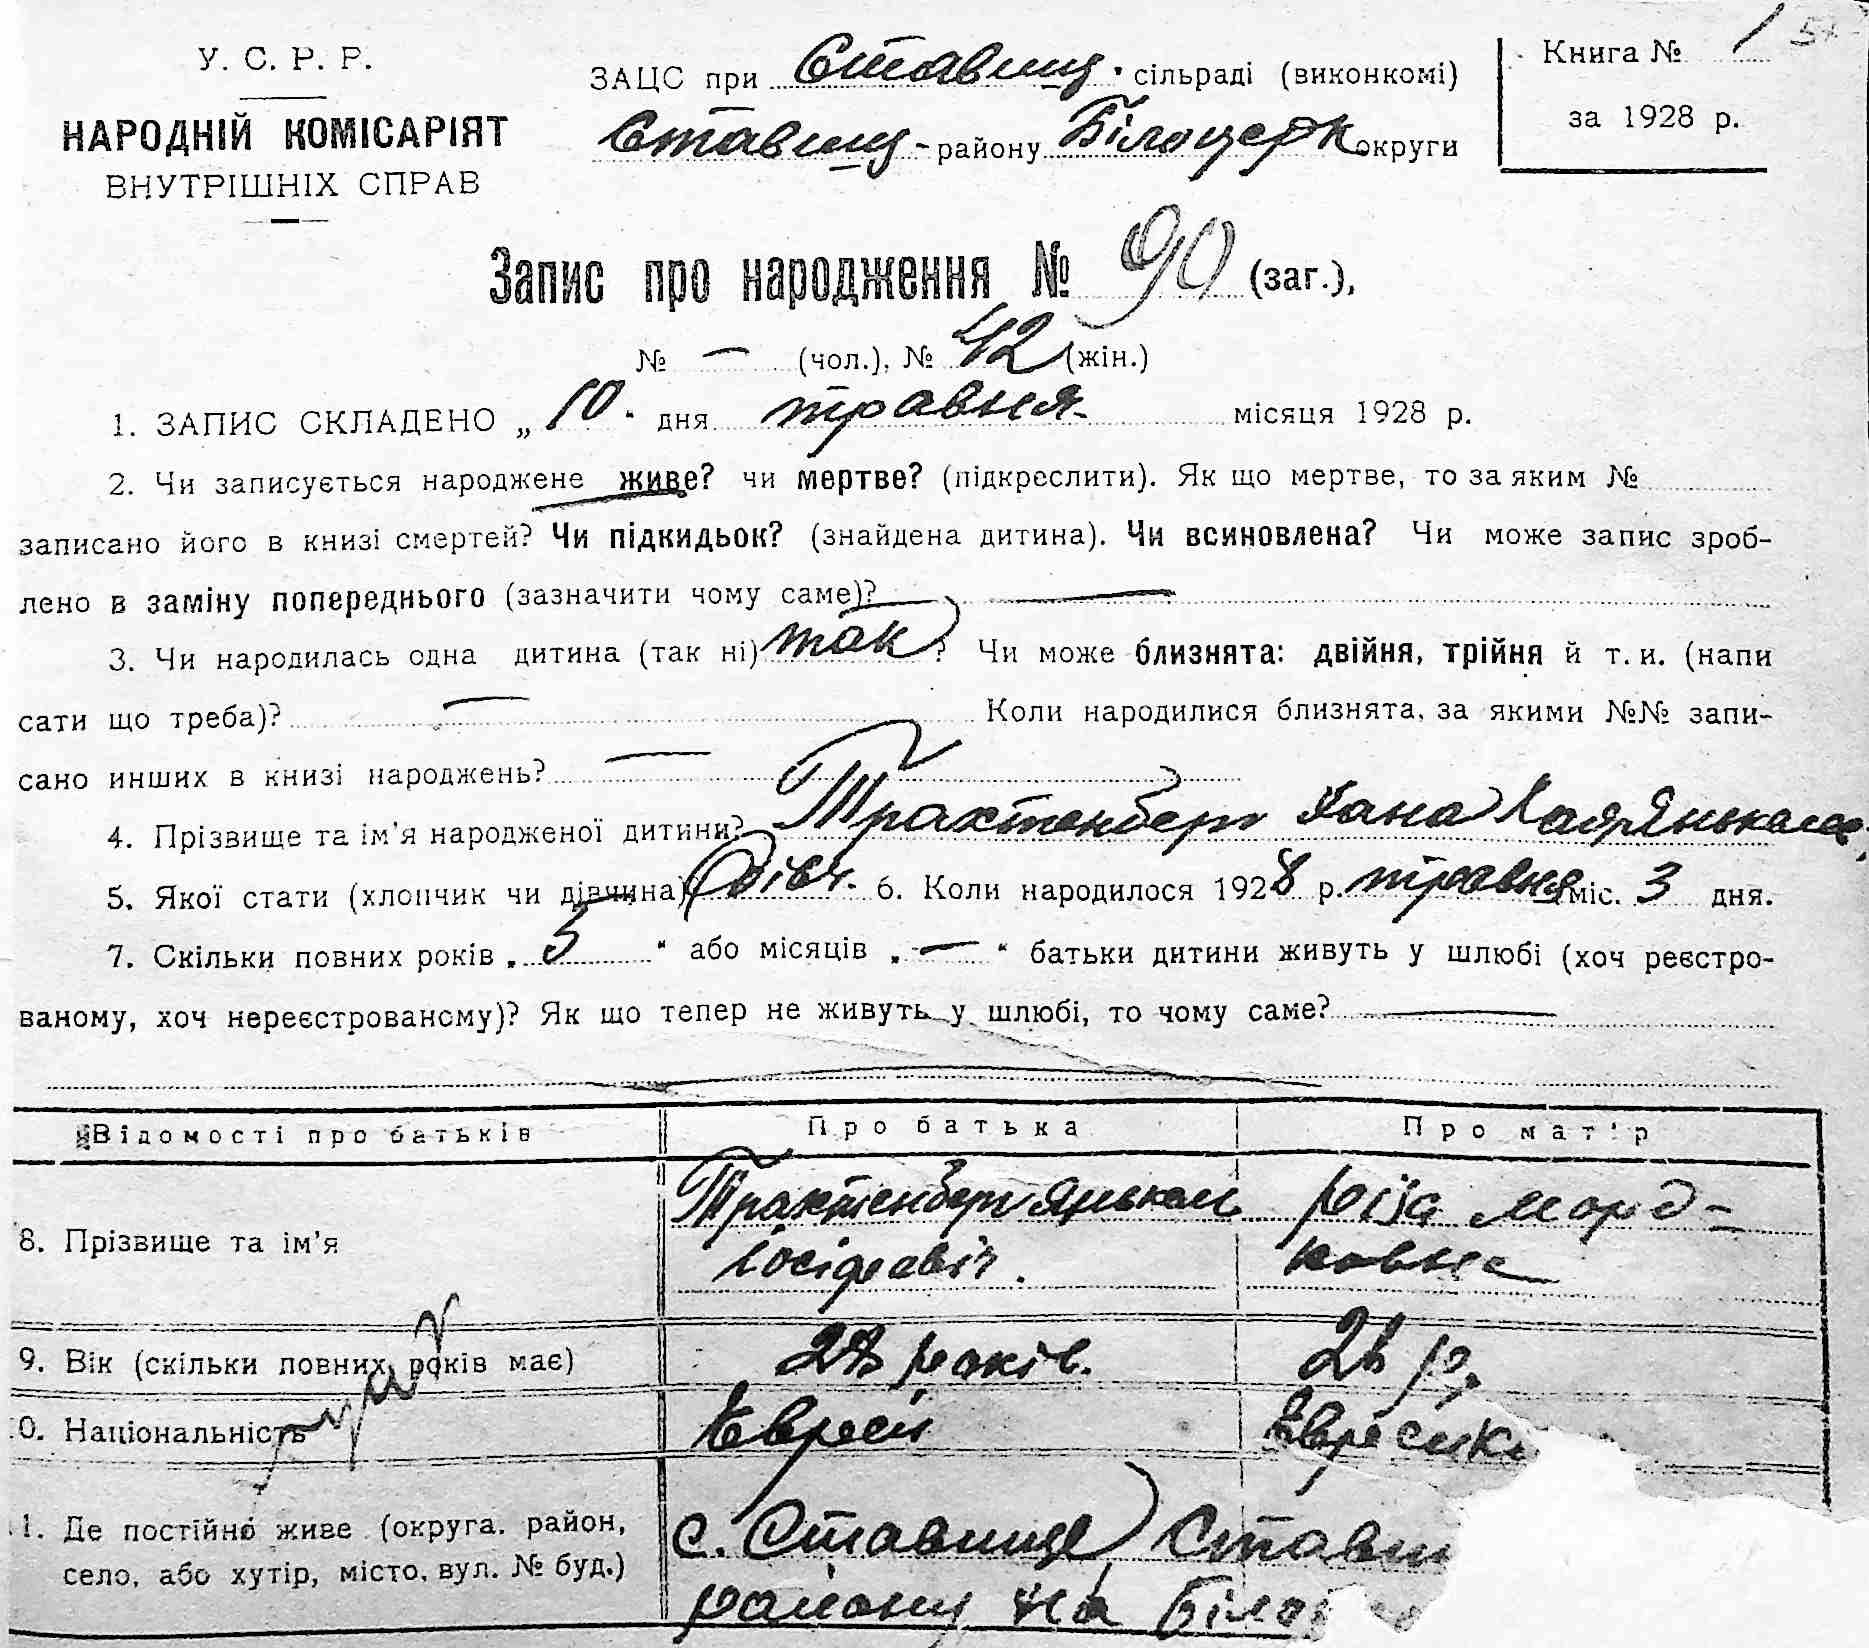 У. С. Р. Р.
НАРОДНІЙ КОМІСАРІЯТ
ВНУТРІШНІХ СПРАВ
ЗАЦС при Ставищ. сільраді (виконкомі)
Ставищ- району Білоцерк округи
Книга № 1
за 1928 р.
Запис про народження № 90 (заг.),
№ — (чол.), № 42 (жін.)
1. ЗАПИС СКЛАДЕНО „ 10 " дня травня місяця 1928 р.
2. Чи записується народжене живе? чи мертве? (підкреслити). Як що мертве, то за яким №
записано його в книзі смертей? Чи підкидьок? (знайдена дитина). Чи всиновлена? Чи може запис зроб-
лено в заміну попереднього (зазначити чому саме)? —
3. Чи народилась одна дитина (так ні) так ? Чи може близнята: двійня, трійня й т. и. (напи
сати що треба)? — Коли народилися близнята, за якими №№ запи-
сано инших в книзі народжень? —
4. Прізвище та ім'я народженої дитини? Трахтенберг Хана
5. Якої стати (хлопчик чи дівчина) дівч. 6. Коли народилося 1928 р. травня міс. 3 дня.
7. Скільки повних років „ 5 " або місяців „ — " батьки дитини живуть у шлюбі (хоч реєстро-
ваному, хоч нереєстрованому)? Як що тепер не живуть у шлюбі, то чому саме? —
Відомості про батьків Про батька Про матір
8. Прізвище та ім'я
Трахтенберг Янькель
Іосіфовіч.
Реїза Морд-
ковна
9. Вік (скільки повних років має) 28 років. 2 р.
0. Національність Єврей Єврейка
1. Де постійно живе (округа, район,
село, або хутір, місто, вул. № буд.)
с. Ставище Стави
району на Біло